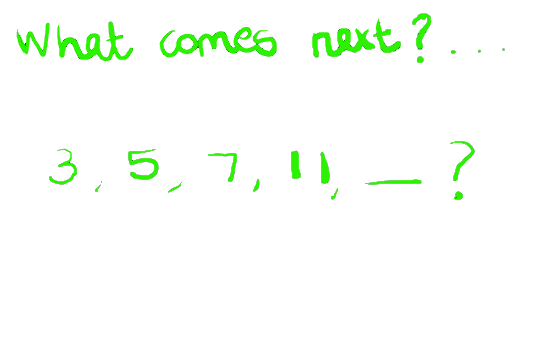 What comes next?...
3, 5, 7, 11, __?